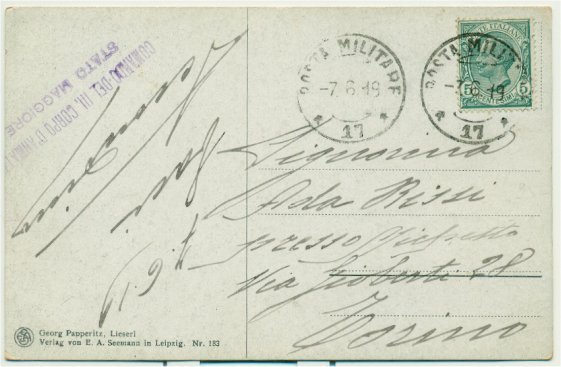 COMANDO DEL III. CORPO D'ARMA
STATO MAGGIORE
POSTA MILITARE
-7.6.19
17
POSTA MILIT
-7.6.19
17
POSTE ITALIANE
5 5
7.6.19
Signorina
Ada Rissi
presso
Via Gioberti 28
Torino
Georg Papperitz, Lieserl
Verlag von E. A. Seemann in Leipzig. Nr. 183